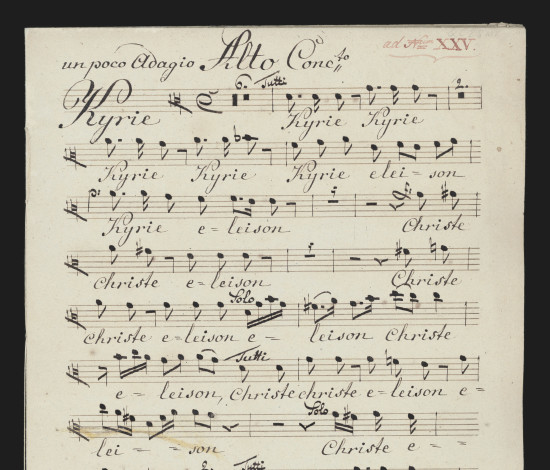 un poco Adagio Alto Conc:to ad Num XXV.
6. Tutti 2.
Kyrie Kyrie Kyrie
Kyrie Kyrie Kyrie elei = son
Kyrie e = leison Christe
Christe e = leison Christe
Solo
Christe e = leison e = leison Christe
Tutti
e = leison, Christe christe e = leison e =
Solo
lei = = son Christe e = = =
Tutti